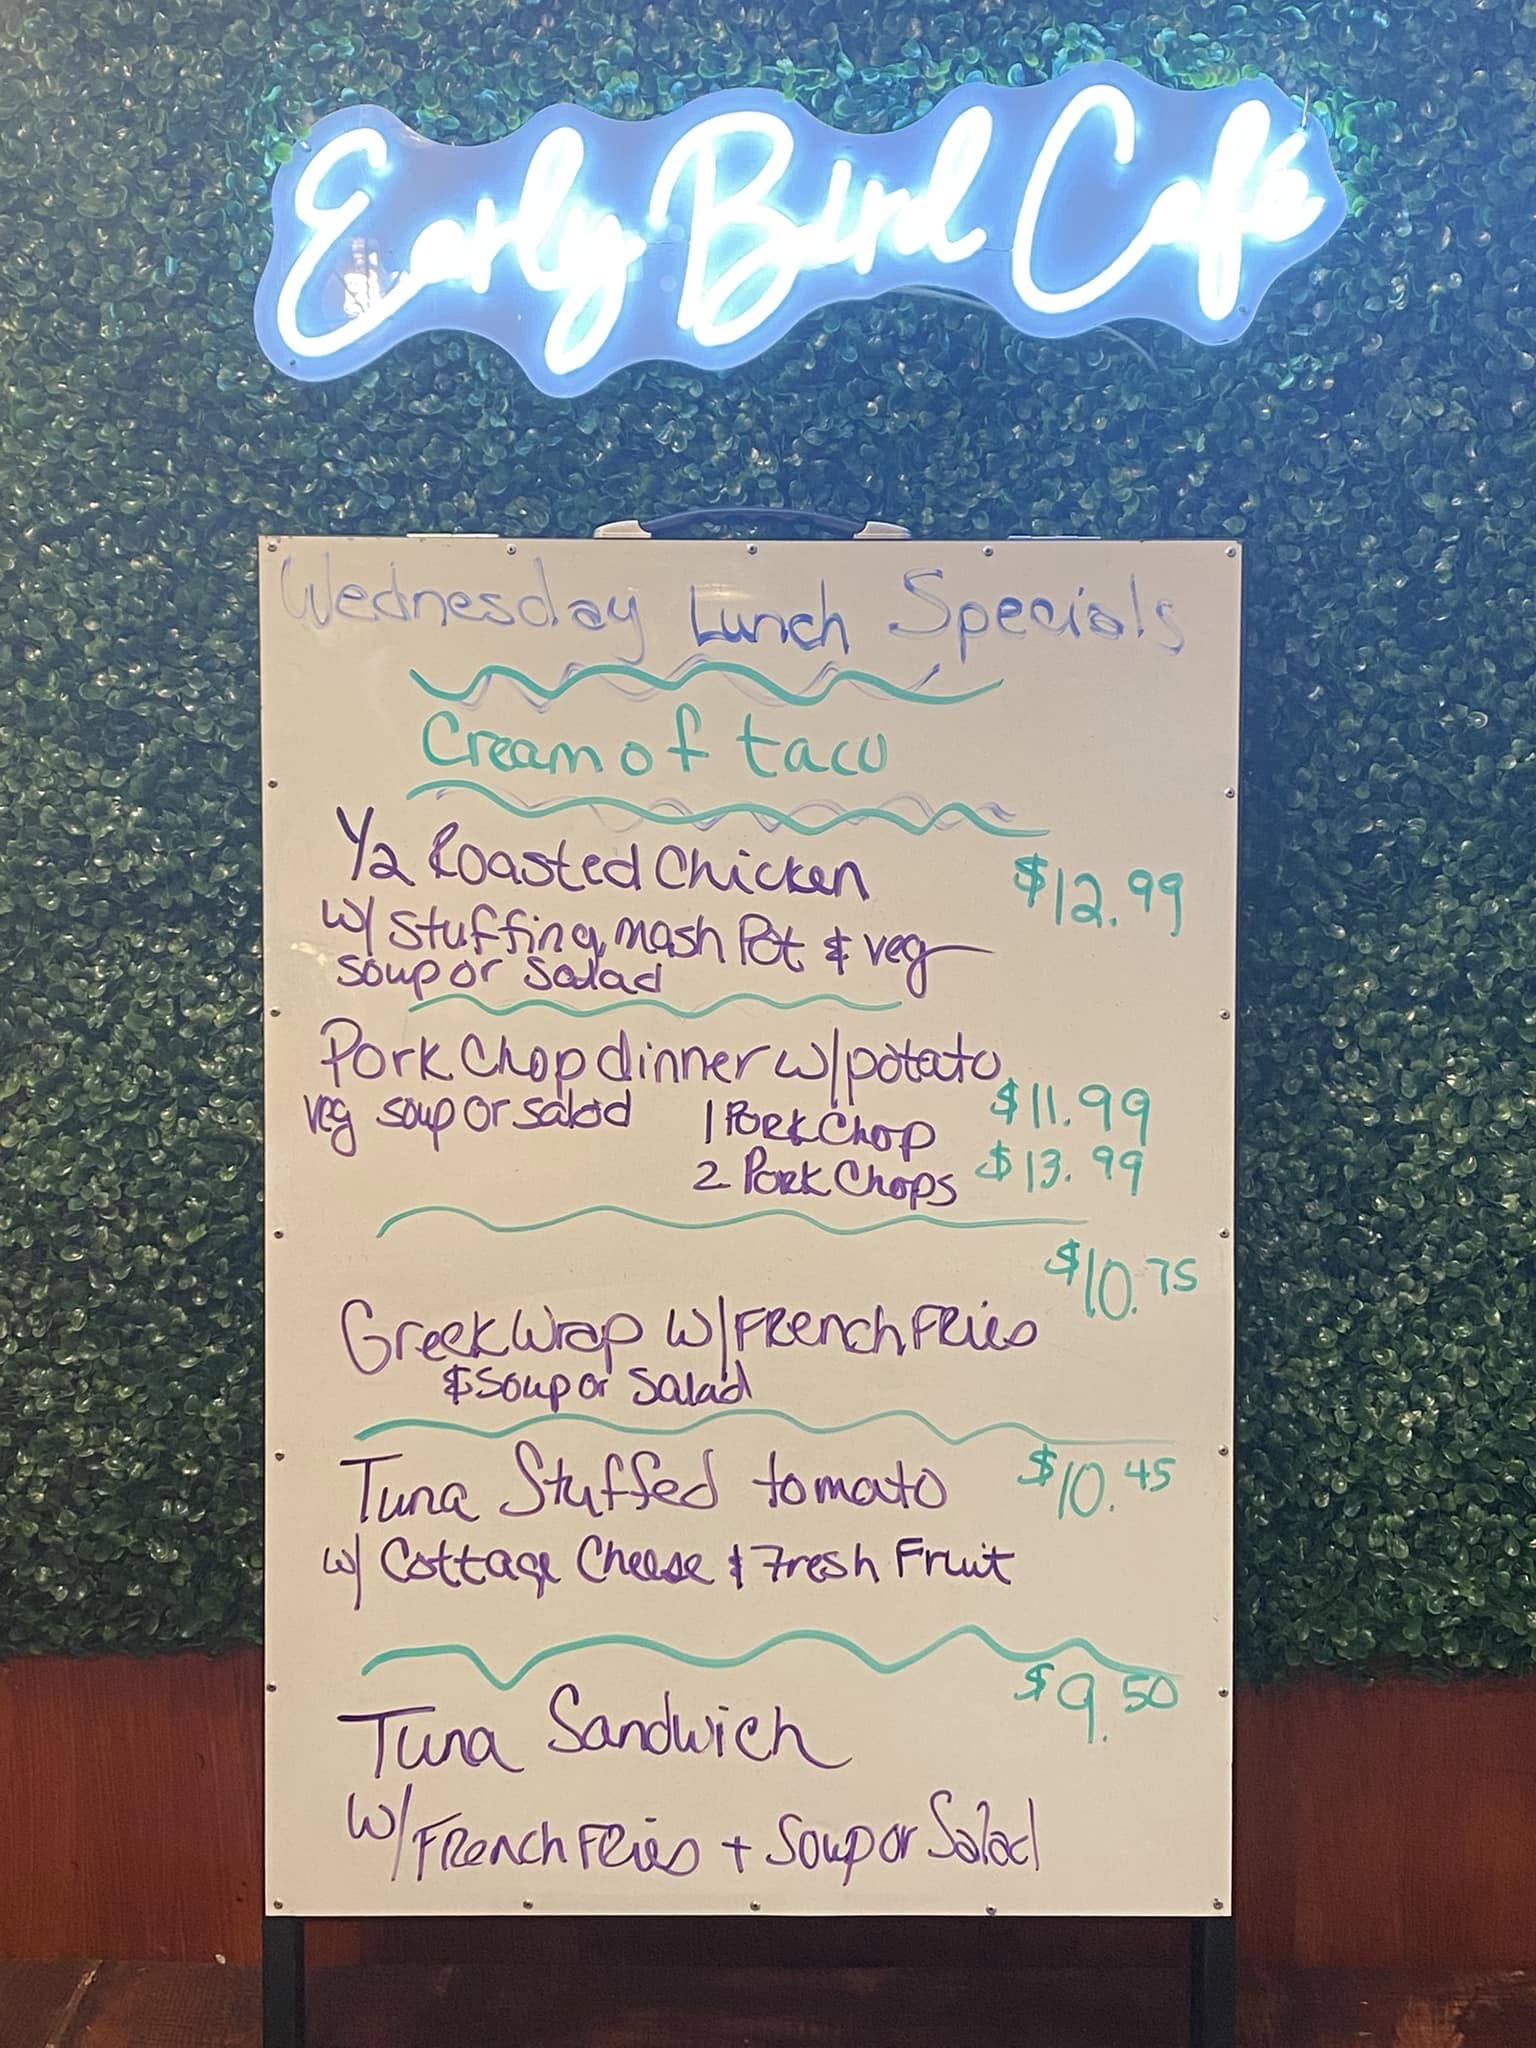 Early Bird Café
Wednesday Lunch Specials
Cream of taco
1/2 Roasted Chicken $12.99
w/ Stuffing, mash Pot & veg
soup or salad
Pork Chop dinner w/potato
veg soup or salad 1 Pork Chop $11.99
2 Pork Chops $13.99
$10.75
Greek Wrap w/French Fries
& Soup or Salad
Tuna Stuffed tomato $10.45
w/ Cottage Cheese & Fresh Fruit
$9.50
Tuna Sandwich
w/French Fries + Soup or Salad